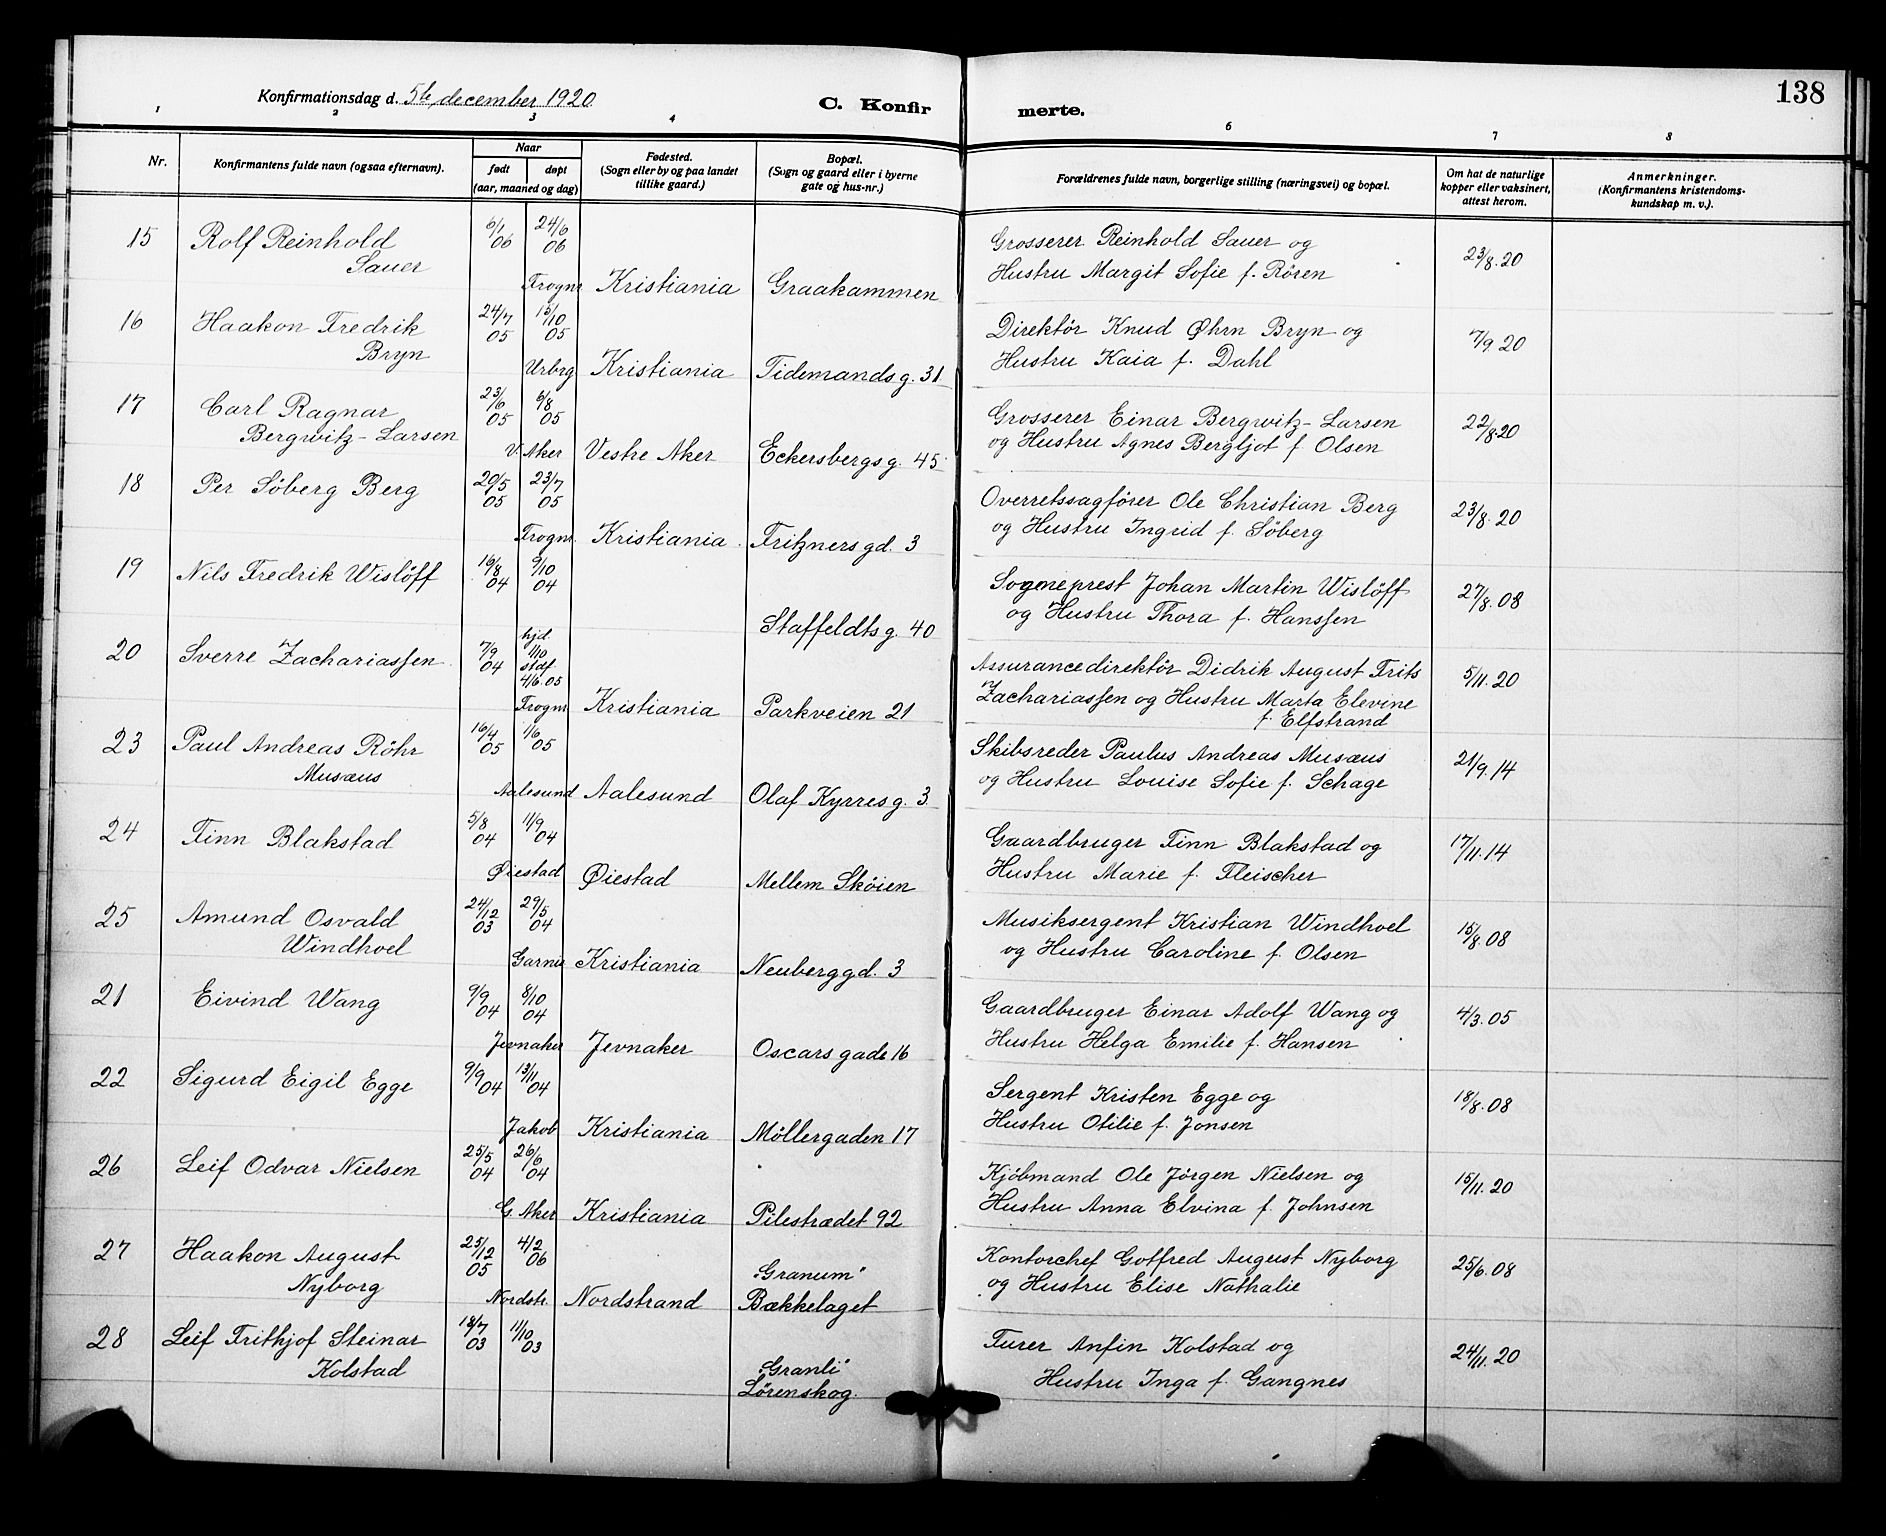 138
Konfirmationsdag d. 5te december 1920
C. Konfirmerte.
1 2 3 4 6 7 8
Nr.
Konfirmantens fulde navn (ogsaa efternavn).
Naar
født døpt
(aar, maaned og dag)
Fødested.
(Sogn eller by og paa landet
tillike gaard.)
Bopæl.
(Sogn og gaard eller i byerne
gate og hus-nr.)
Forældrenes fulde navn, borgerlige stilling (næringsvei) og bopæl.
Om hat de naturlige
kopper eller vaksinert,
attest herom.
Anmerkninger.
(Konfirmantens kristendoms-
kundskap m. v.).
15 Rolf Reinhold 6/1 06 24/6 06 Grosserer Reinhold Sauer og 23/8.20
Sauer Hustru Margit Sofie f. Rören
Frogner Kristiania Graakammen
16 Haakon Fredrik 24/7 05 15/10 05 Direktör Knud Øhrn Bryn og 7/9 20
Bryn Hustru Kaia f. Dahl
Urbrg Kristiania Tidemandsg. 31
17 Carl Ragnar 23/6 05 6/8 05 Grosserer Einar Bergwitz-Larsen 22/8.20
Bergwitz-Larsen og Hustru Agnes Bergljot f. Olsen
V. Aker Vestre Aker Eckersbergsg. 45
18 Per Söberg Berg 20/5 05 23/7 05 Overretssagförer Ole Christian Berg 23/8.20
og Hustru Ingrid f. Söberg
Frogn. Kristiania Fritznersgd. 3
19 Nils Fredrik Wislöff 16/8 04 9/10 04 Sogneprest Johan Martin Wislöff 27/8.08
og Hustru Thora f. Hanssen
Staffeldtsg. 40
20 Sverre Zachariassen 7/9 04 hjd. 1/10 stdf. 4/6.05 Assurancedirektör Didrik August Frits 5/11.20
Zachariassen og Hustru Marta Elevine
f. Elfstrand
Frogn. Kristiania Parkveien 21
23 Paul Andreas Röhr 16/4 05 1/6 05 Skibsreder Paulus Andreas Musæus 21/9.14
Musæus og Hustru Louise Sofie f. Schage
Aalesund Aalesund Olaf Kyrresg. 3
24 Finn Blakstad 5/8 04 11/9 04 Gaardbruger Finn Blakstad og 17/11.14
Hustru Marie f. Fleischer
Øiestad Øiestad Mellem Sköien
25 Amund Osvald 24/12 03 29/5 04 Musiksergent Kristian Windhoel 15/8.08
Windhoel og Hustru Caroline f. Olsen
Garnis Kristiania Neuberggd. 3
21 Eivind Wang 9/9 04 8/10 04 Gaardbruger Einar Adolf Wang og 4/3.05
Hustru Helga Emilie f. Hansen
Jevnaker Jevnaker Oscars gade 16
22 Sigurd Eigil Egge 9/9 04 13/11 04 Sergent Kristen Egge og 18/8.08
Hustru Otilie f. Jonsen
Jakob Kristiania Möllergaden 17
26 Leif Odvar Nielsen 25/5 04 26/6 04 Kjöbmand Ole Jörgen Nielsen og 15/11.20
Hustru Anna Elvina f. Johnsen
G. Aker Kristiania Pilestrædet 92
27 Haakon August 25/12 05 4/2 06 Kontorchef Gotfred August Nyborg 25/6.08
Nyborg "Granum" og Hustru Elise Nathalie
Nordstr. Nordstrand Bækkelaget
28 Leif Frithjof Steinar 18/7 03 1/10 03 Furer Anfin Kolstad og 24/11.20
Kolstad "Granli" Hustru Inga f. Gangnes
Lørenskog.